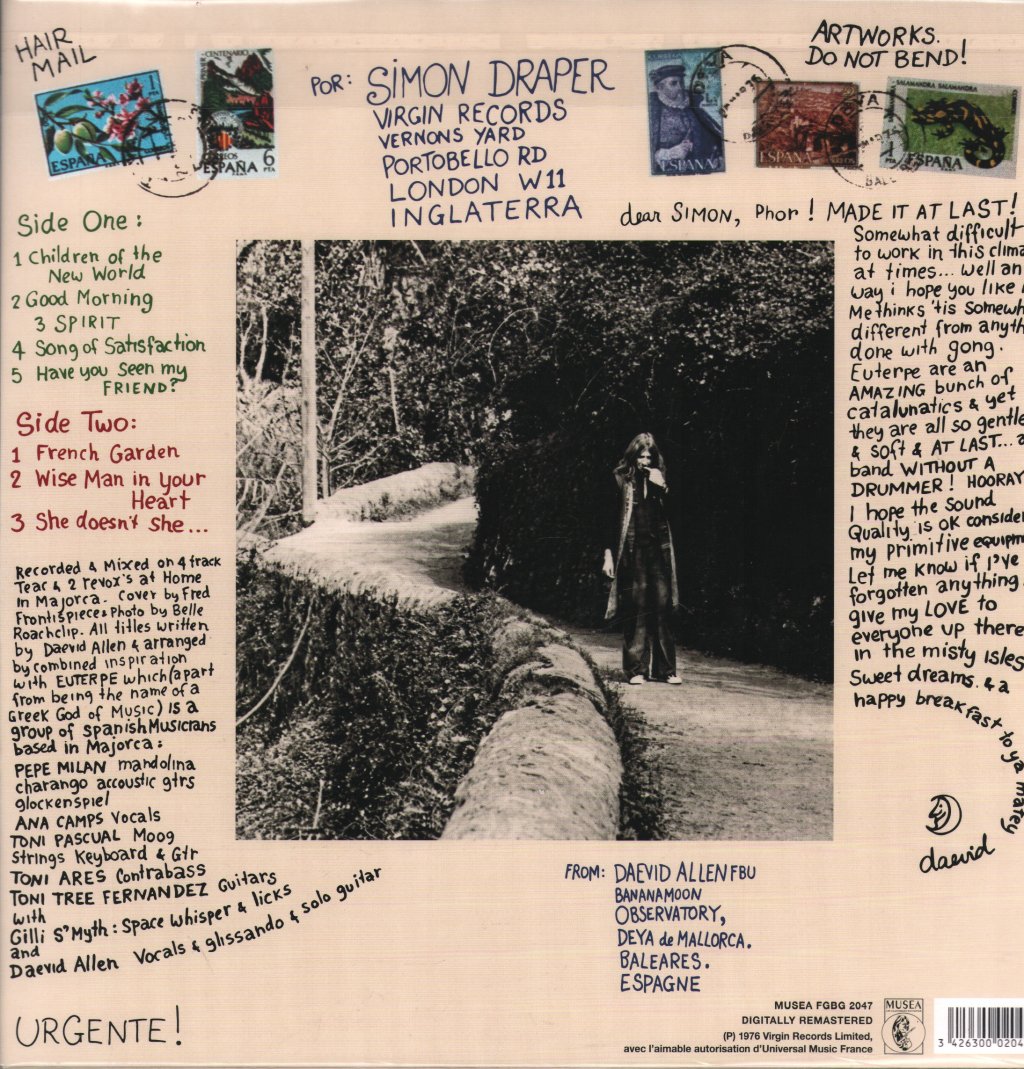 HAIR
MAIL
ESPAÑA
CENTENARIO
CORREOS
ESPAÑA 6
PTA
POR: SIMON DRAPER
VIRGIN RECORDS
VERNONS YARD
PORTOBELLO RD
LONDON W11
INGLATERRA
ARTWORKS.
DO NOT BEND!
ESPAÑA
ESPAÑA
SALAMANDRA SALAMANDRA
ESPAÑA
Side One:
1 Children of the
New World
2 Good Morning
3 SPIRIT
4 Song of Satisfaction
5 Have you seen my
FRIEND?
Side Two:
1 French Garden
2 Wise Man in your
Heart
3 She doesn't she...
Recorded & Mixed on 4 track
Teac & 2 revox's at Home
in Majorca. Cover by Fred
Frontispiece & Photo by Belle
Roachclip. All titles written
by Daevid Allen & arranged
by combined inspiration
with EUTERPE which (apart
from being the name of a
Greek God of Music) is a
group of Spanish Musicians
based in Majorca:
PEPE MILAN mandolina
charango accoustic gtrs
glockenspiel
ANA CAMPS Vocals
TONI PASCUAL Moog
Strings Keyboard & Gtr
TONI ARES Contrabass
TONI TREE FERNANDEZ Guitars
with
Gilli S'Myth: Space Whisper & licks
and
Daevid Allen Vocals & glissando & solo guitar
URGENTE!
dear SIMON, Phor! MADE IT AT LAST!
Somewhat difficult
to work in this clima
at times... well an
way i hope you like
Methinks 'tis Somewh
different from anyth
done with gong.
Euterpe are an
AMAZING bunch of
catalunatics & yet
they are all so gentle
& soft & AT LAST... a
band WITHOUT A
DRUMMER! HOORAY
I hope the Sound
Quality is OK consider
my primitive equipm
Let me know if I've
forgotten anything
give my LOVE to
everyone up there
in the misty isles
Sweet dreams. & a
happy breakfast to ya matey
daevid
FROM: DAEVID ALLEN FBU
BANANAMOON
OBSERVATORY,
DEYA de MALLORCA.
BALEARES.
ESPAGNE
MUSEA FGBG 2047
DIGITALLY REMASTERED
(P) 1976 Virgin Records Limited,
avec l'aimable autorisation d'Universal Music France
MUSEA
3 426300 0204